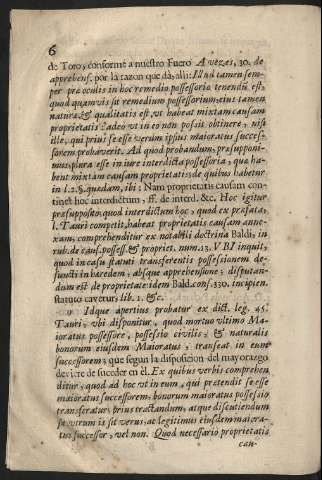 6
de Toro, conforme a nuestro Fuero A vezes, 30. de
apprehens. por la razon que dà, alli: Illud tamen sem-
per præ oculis in hoc remedio possessorio tenendũ est,
quod quamvis sit remedium possessorium, eius tamen
natura, & qualitatis est, vt habeat mixtam causam
proprietatis: adeo vt in eo non possit obtinere, nisi
ille, qui priùs se esse verum ipsius maioratus succes-
sorem probaverit. Ad quod probandum, præsupponi-
mus, plura esse in iure interdicta possessoria, quæ ha-
bent mixtam causam proprietatis, de quibus habetur
in l. 2. §. quædam, ibi: Nam proprietatis causam con-
tinet hoc interdictum, ff. de interd. &c. Hoc igitur
præsupposito, quod interdictum hoc, quod ex præfata,
l. Tauri competit, habeat proprietatis causam anne-
xam, comprehenditur ex notabili doctrina Baldi, in
rub. de caus. possess. & propriet. num. 13. VBI inquit,
quod in casu statuti transferentis possessionem de-
functi in hæredem, absque apprehensione, disputan-
dum est de proprietate: idem Bald. cons. 330. incipien.
statuto cavetur, lib. 1. &c.
Idque apertius probatur ex dict. leg. 45.
Tauri, vbi disponitur, quod mortuo vltimo Ma-
ioratus possessore, possessio civilis, & naturalis
bonorum eiusdem Maioratus, transeat in eum
successorem, que segun la disposicion del mayorazgo
deviere de suceder en èl. Ex quibus verbis comprehen
ditur, quod ad hoc vt in eum, qui prætendit se esse
maioratus successorem, bonorum maioratus possessio
transferatur, prius tractandum, atque discutiendum
se, vtrum is sit verus, ac legitimus eiusdem maiora-
tus successor, vel non. Quod necessario proprietatis
cau-